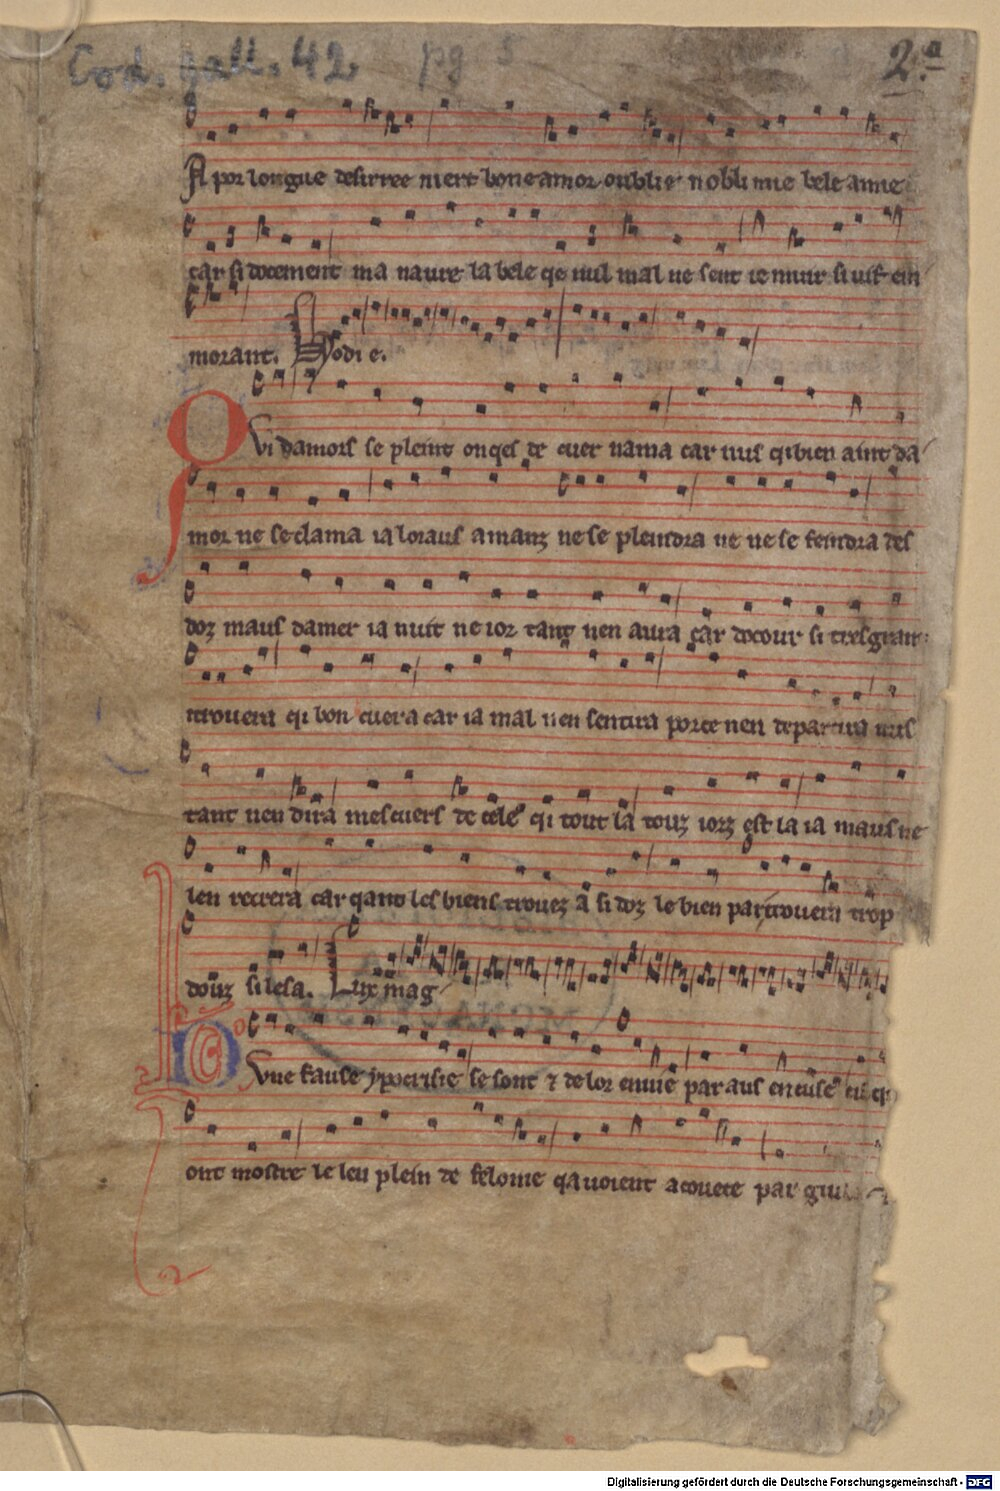 Cod. gall. 42. pg 5 2.a
A por longue desirree niert bone amor oubliee noblimie bele amie
car si docement ma navre la bele qe nul mal ne sent ie muir si vif ein
morant. Hodie.
Qvi damors se pleint onqes de cuer nama car nus qi bien aint da
mor ne se clama ia loraus amanz ne se pleindra ne ne se feindra des
doz maus damer ia nuit ne ior tant nen aura car docour si tres grant
trouera qi bon cuer a car ia mal nen sentira por ce nen departira mis
tant nen dira mes cuers de cele qi tout la touz iorz est la ia maus ne
len recrera car qant les biens trouez a si doz le bien par trouera trop
douz si lesa. Lux mag
Qvue fause ypocrisie se sont ⁊ de lor enuie par aus encuse
ont mostre le leu plein de felonie qauoient acouete par
Digitalisierung gefördert durch die Deutsche Forschungsgemeinschaft - DFG